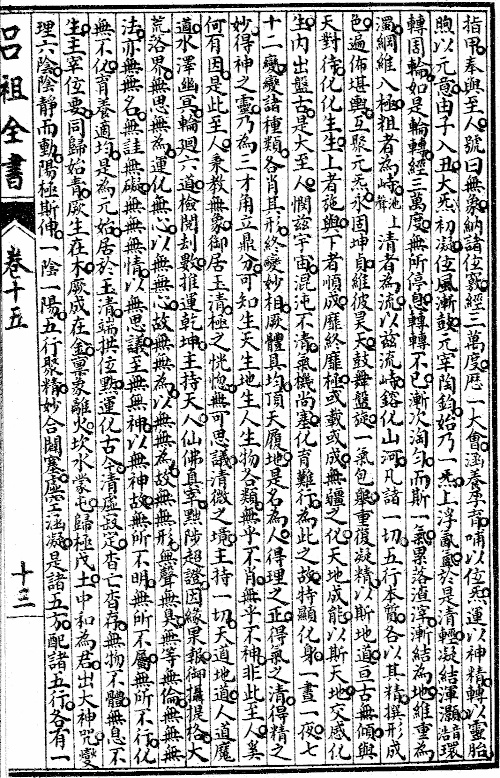 指甲奉與至人號曰無象納諸位敦經三萬度歷一大會涵養孕育哺以位炁運以神精轉以靈胎
煦以元意由子入丑大炁初凝位風漸鼓元宰陶鈞始乃一炁上浮氤氳於是清輕凝結渾灝音環
轉周輪如是輪轉經三萬度無所停息轉轉不已漸次淘勻而斯一氣果落渣滓漸結為地維重為
濁綱維八極粗者為峙聲上清者為流以茲流峙鎔化山河凡諸一切五行本質各以其精撰形成
色遍佈堪輿互聚元炁永固坤貞維彼昊天鼓舞盤旋一氣包裂重復凝精以斯地道亘古無傾與
天對待化化生生上者施與下者順成靡終靡極或載或成無疆之化天地成能以斯天地交感化
生內出盤古是大至人憫茲宇宙混沌不清氣機尚塞化育難行為此之故特顯化身一晝一夜七
十二變變諸種類各肖其形終變妙相厥體具均頂天履地是名為人得理之正得氣之清得精之
妙得神之靈乃為三才用立鼎分可知生天生地生人生物各類無乎不肖無乎不神非此至人奚
何有因是此至人乘教無象御居玉清極之恍惚無可思議清微之境主持一切天道地道人道魔
道水澤幽冥輪廻六道檢閱刦數推運乾坤主持天人仙佛真宰黜陟超證因緣果報御攝提挌大
荒洛界無思無為運化無心以無無心故無無為以無無為故無無形無聲無臭無等無倫無無無
法亦無無名無詿無礙無無無情以無思議至無無神以無神故無所不明無所不屬無所不行化
無不化育養適均是為元始居於玉清端拱位點運化古今清虛寂定杳亡杳存無物不體無息不
生主宰位要同歸始青厥生在木厥成在金稟象離火坎水蒙屯歸極戊土中和為君出大神咒變
理六陰陰靜而動陽極斯伸一陰一陽五行聚精妙合闔塞虛空涵凝是諸五方配諸五行各有一
呂祖全書
卷十五
十三